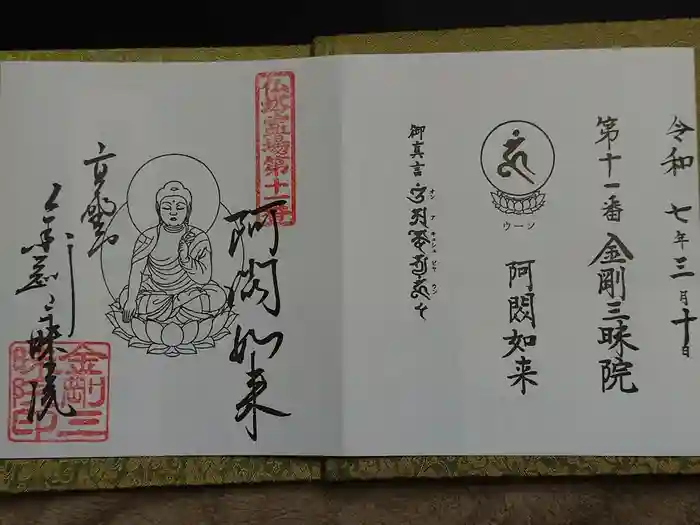 令和七年三月十日
第十一番 金剛三昧院
ウーン
阿閦如来
御真言
オン アキシュビヤ ウン
仏塔霊場第十一番
阿閦如来
高野山
金剛三昧院
金剛三昧院印